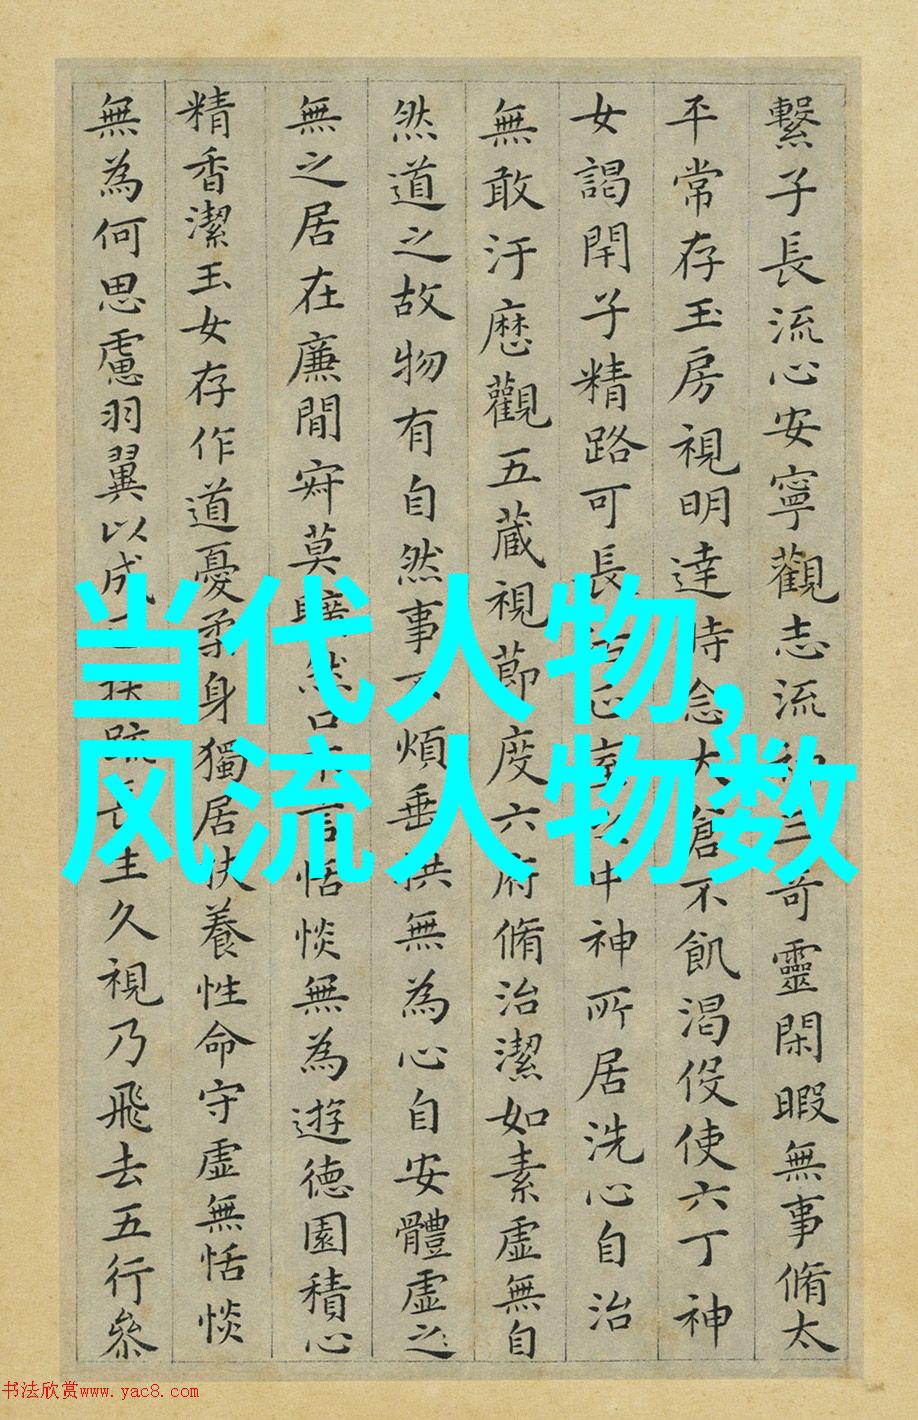 繫子長流心安寧觀志流三奇靈閑暇無事脩太
平常存玉房視明達時念大倉不飢渴伇使六丁神
女謁閇子精路可長正室之中神所居洗心自治
無敢汙歷觀五藏視節度六府脩治潔如素虛無自
然道之故物有自然事不煩垂拱無為心自安體虛之
無之居在廉間寂莫曠然口不言恬惔無為遊德園積心
精香潔玉女存作道憂柔身獨居扶養性命守虛無恬惔
無為何思慮羽翼以成扶疏長生久視乃飛去五行參
当代人物,
风流人物数
书法欣赏www.yac8.com